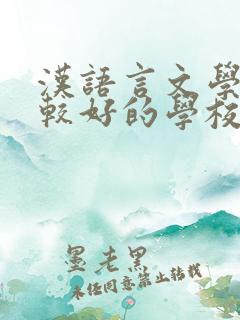 漢語言文學
較好的學校
墨老黑
未經同意禁止轉載